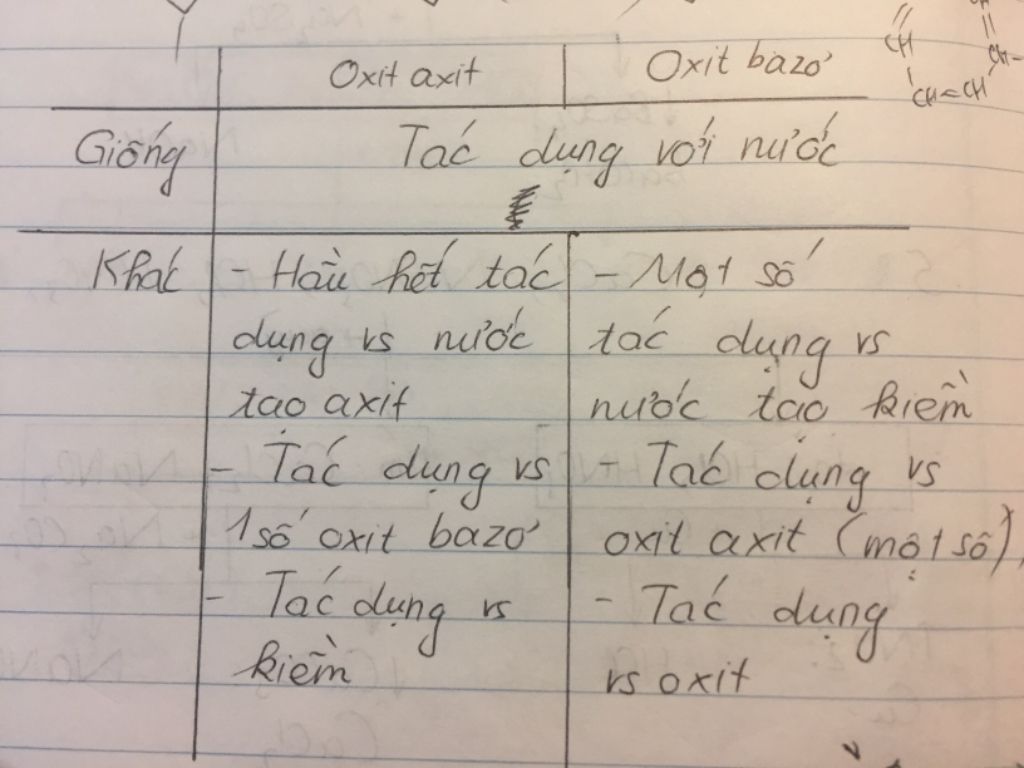 Oxit axit Oxit bazơ
Giống Tác dụng với nước
Khác - Hầu hết tác - Một số
dụng vs nước tác dụng vs
tạo axit nước tạo kiềm
- Tác dụng vs - Tác dụng vs
1 số oxit bazơ oxit axit (một số)
- Tác dụng vs - Tác dụng
kiềm vs oxit
CH
CH
CH=CH